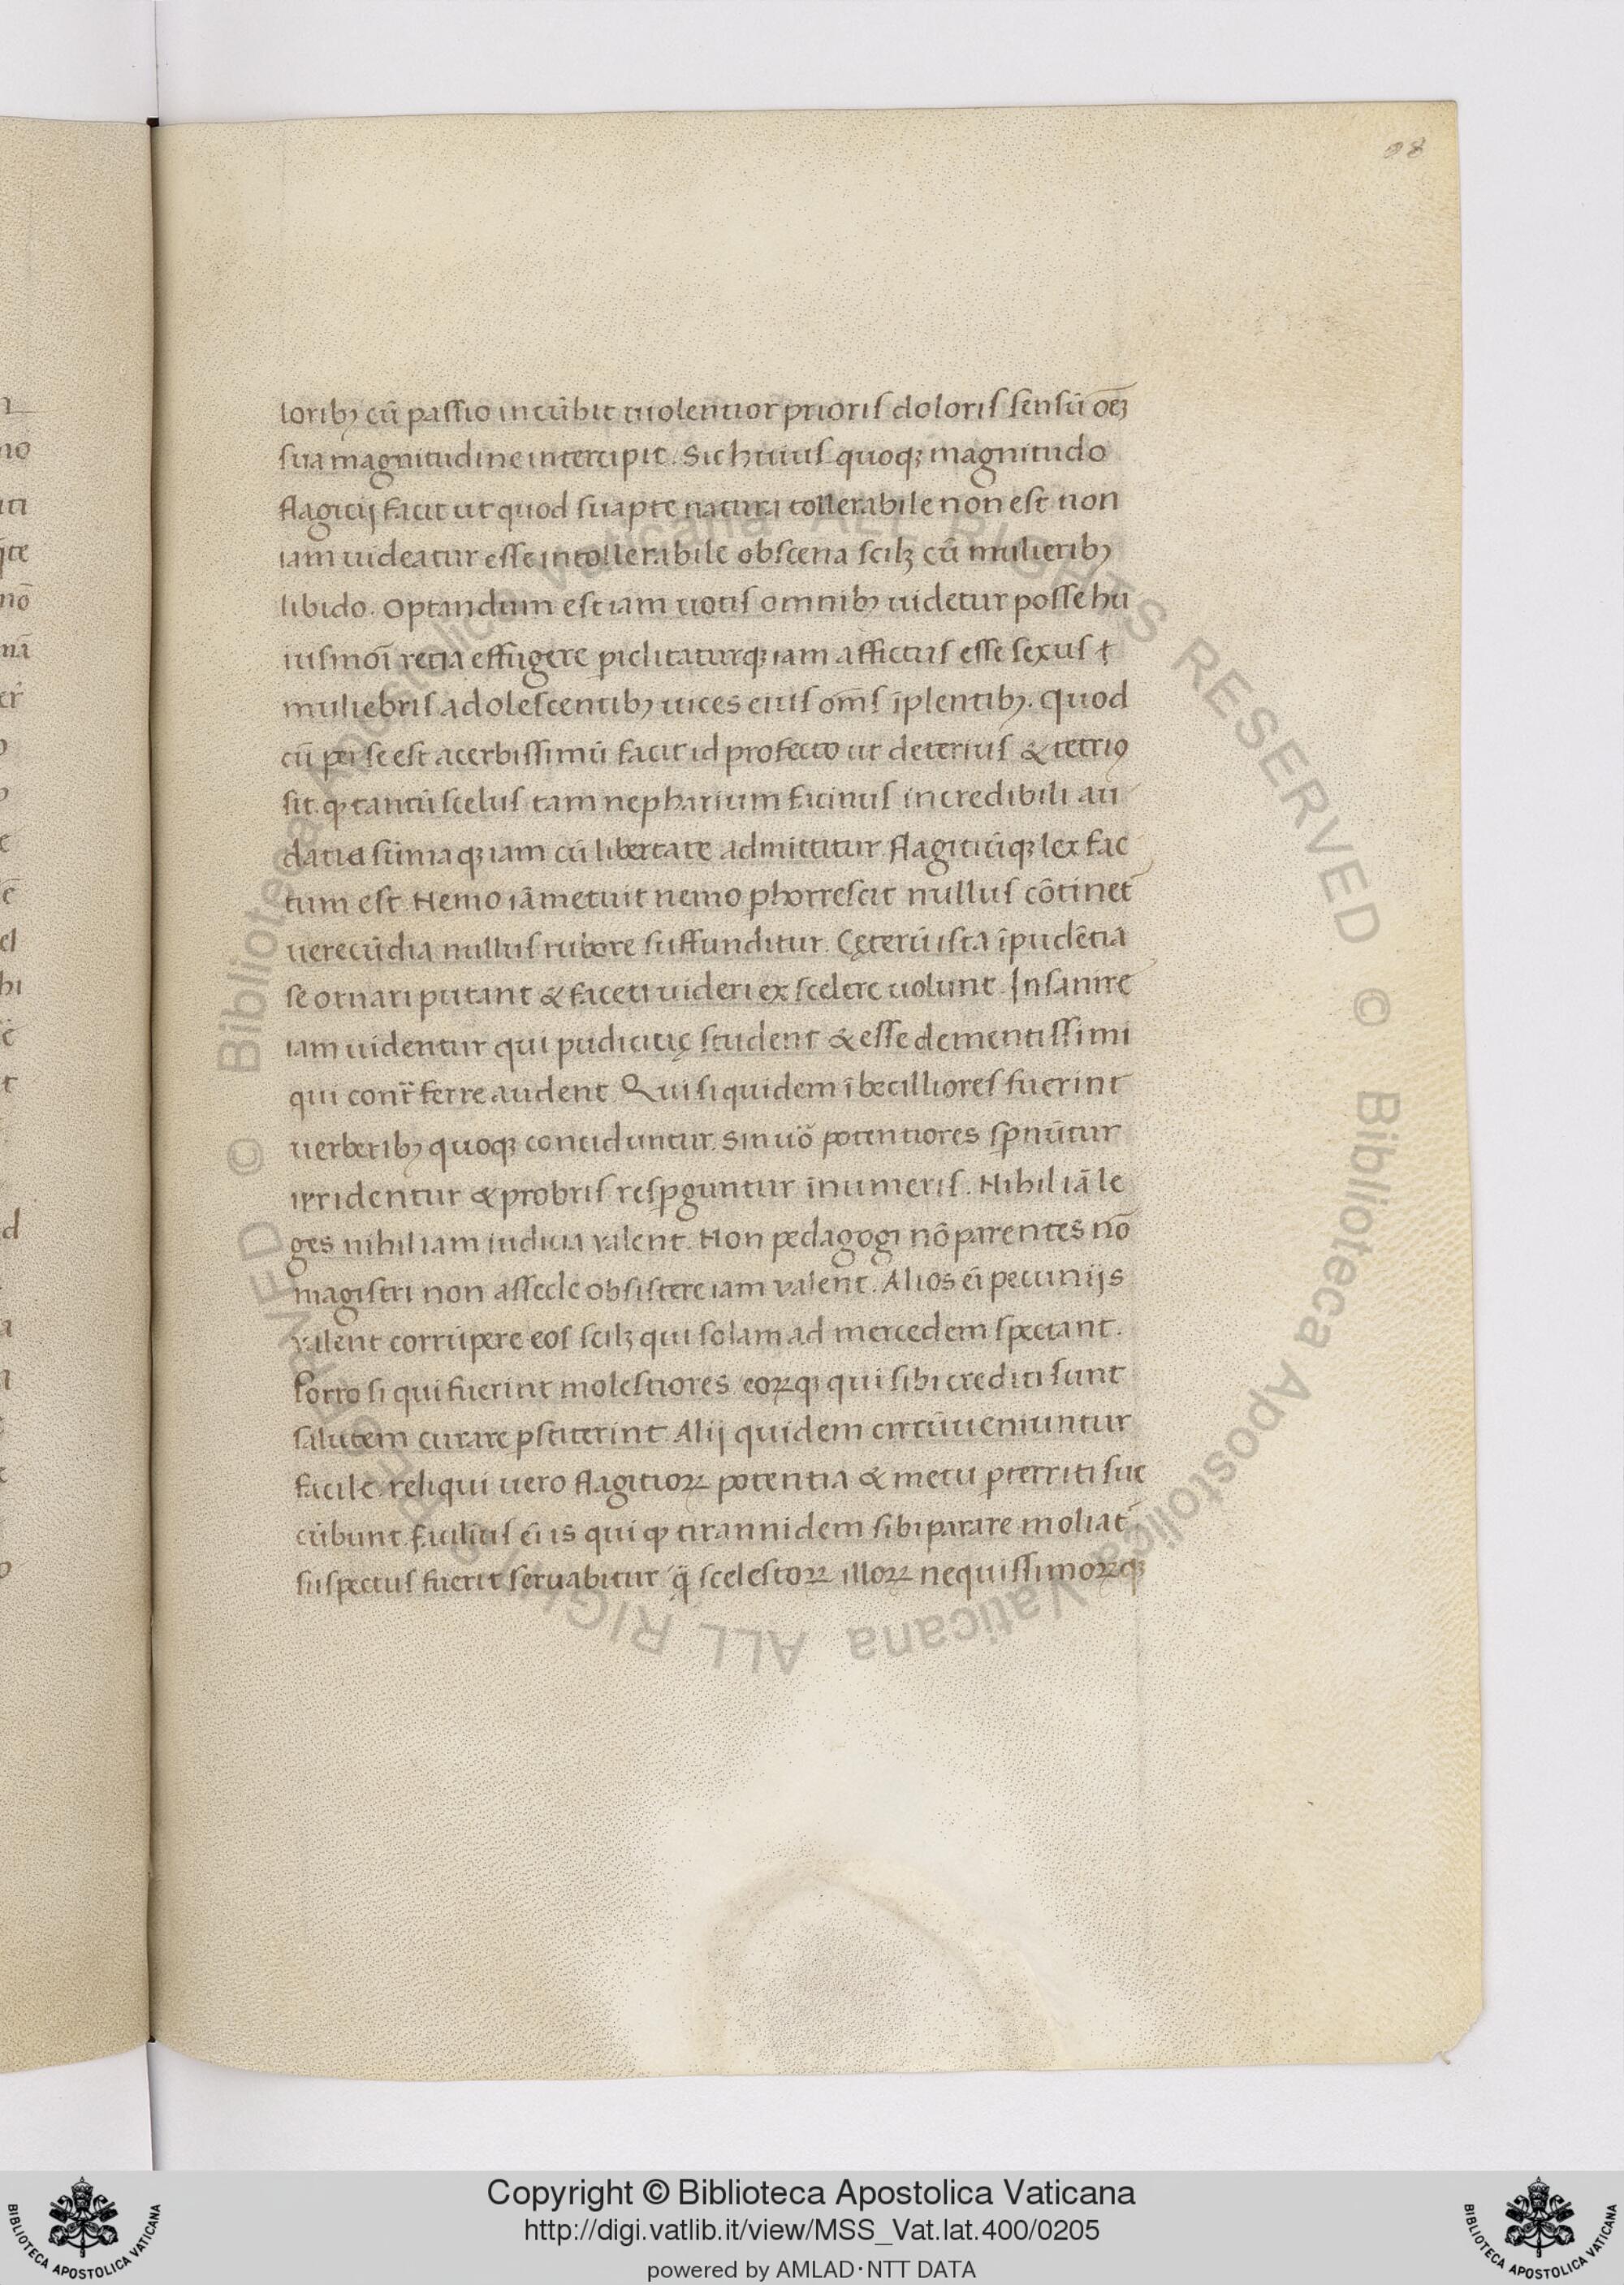 98
loribꝫ cū paſſio incūbit uiolentior prioriſ doloriſ ſenſū oēꝫ
ſua magnitudine intercipit. Sic huiuſ quoqꝫ magnitudo
flagicij facit ut quod ſuapte natura tollerabile non eſt non
iam uideatur eſſe intollerabile obſcena ſcilꝫ cū mulieribꝫ
libido. Optandum eſt iam uotiſ omnibꝫ uidetur poſſe hu
iuſmōi retia effugere piclitaturqꝫ iam affictuſ eſſe ſexuſ
muliebriſ adoleſcentibꝫ uices eiuſ om̄ſ īplentibꝫ. Quod
cū per ſe eſt acerbiſſimū facit id profecto ut deteriuſ & tetriꝰ
ſit. ꝙ tantū ſceluſ tam nepharium facinuſ incredibili au
datia ſūmaqꝫ iam cū libertate admittitur flagitiūqꝫ lex fac
tum eſt. Nemo iā metuit nemo ꝑhorreſcit nulluſ cōtinet
uerecūdia nulluſ rubore ſuffunditur. Cęterū iſta īpudētia
ſe ornari putant & faceti uideri ex ſcelere uolunt. Inſanire
iam uidentur qui pudicitię ſtudent & eſſe dementiſſimi
qui cont̄ ferre audent. Qui ſiquidem ībecillioreſ fuerint
uerberibꝫ quoqꝫ conciduntur. Sin uo᷑ potentiores ſpnūtur
irridentur & probriſ reſpguntur īnumeriſ. Nihil iā le
ges nihil iam iudicia valent. Non pedagogi nō parentes nō
magiſtri non aſſecle obſiſtere iam valent. Alios ei̅ pecunijs
valent corrūpere eoſ ſcilꝫ qui ſolam ad mercedem ſpectant.
Porro ſi qui fuerint moleſtiores eoꝝqꝫ qui ſibi crediti ſunt
ſalutem curare pſtiterint. Alij quidem circūueniuntur
facile. reliqui uero flagitioꝝ potentia & metu pterriti ſuc
cūbunt. Faciliuſ ei̅ is qui ꝙ tirannidem ſibi parare moliat᷑
ſuſpectuſ fuerit ſeruabitur q̄ ſceleſtoꝝ illoꝝ nequiſſimoꝝqꝫ
Copyright © Biblioteca Apostolica Vaticana
http://digi.vatlib.it/view/MSS_Vat.lat.400/0205
powered by AMLAD·NTT DATA